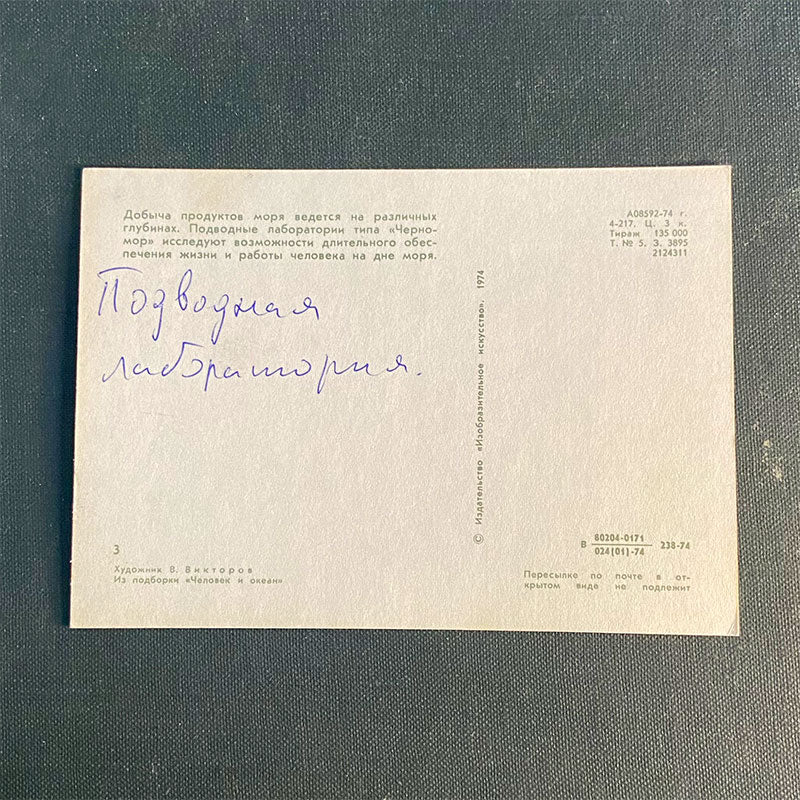 Добыча продуктов моря ведется на различных
глубинах. Подводные лаборатории типа «Черно-
мор» исследуют возможности длительного обес-
печения жизни и работы человека на дне моря.
Подводная
лаборатория.
3
Художник В. Викторов
Из подборки «Человек и океан»
© Издательство «Изобразительное искусство». 1974
А08592-74 г.
4-217. Ц. 3 к.
Тираж 135 000
Т. № 5. З. 3895
2124311
В 80204-0171 238-74
024(01)-74
Пересылке по почте в от-
крытом виде не подлежит